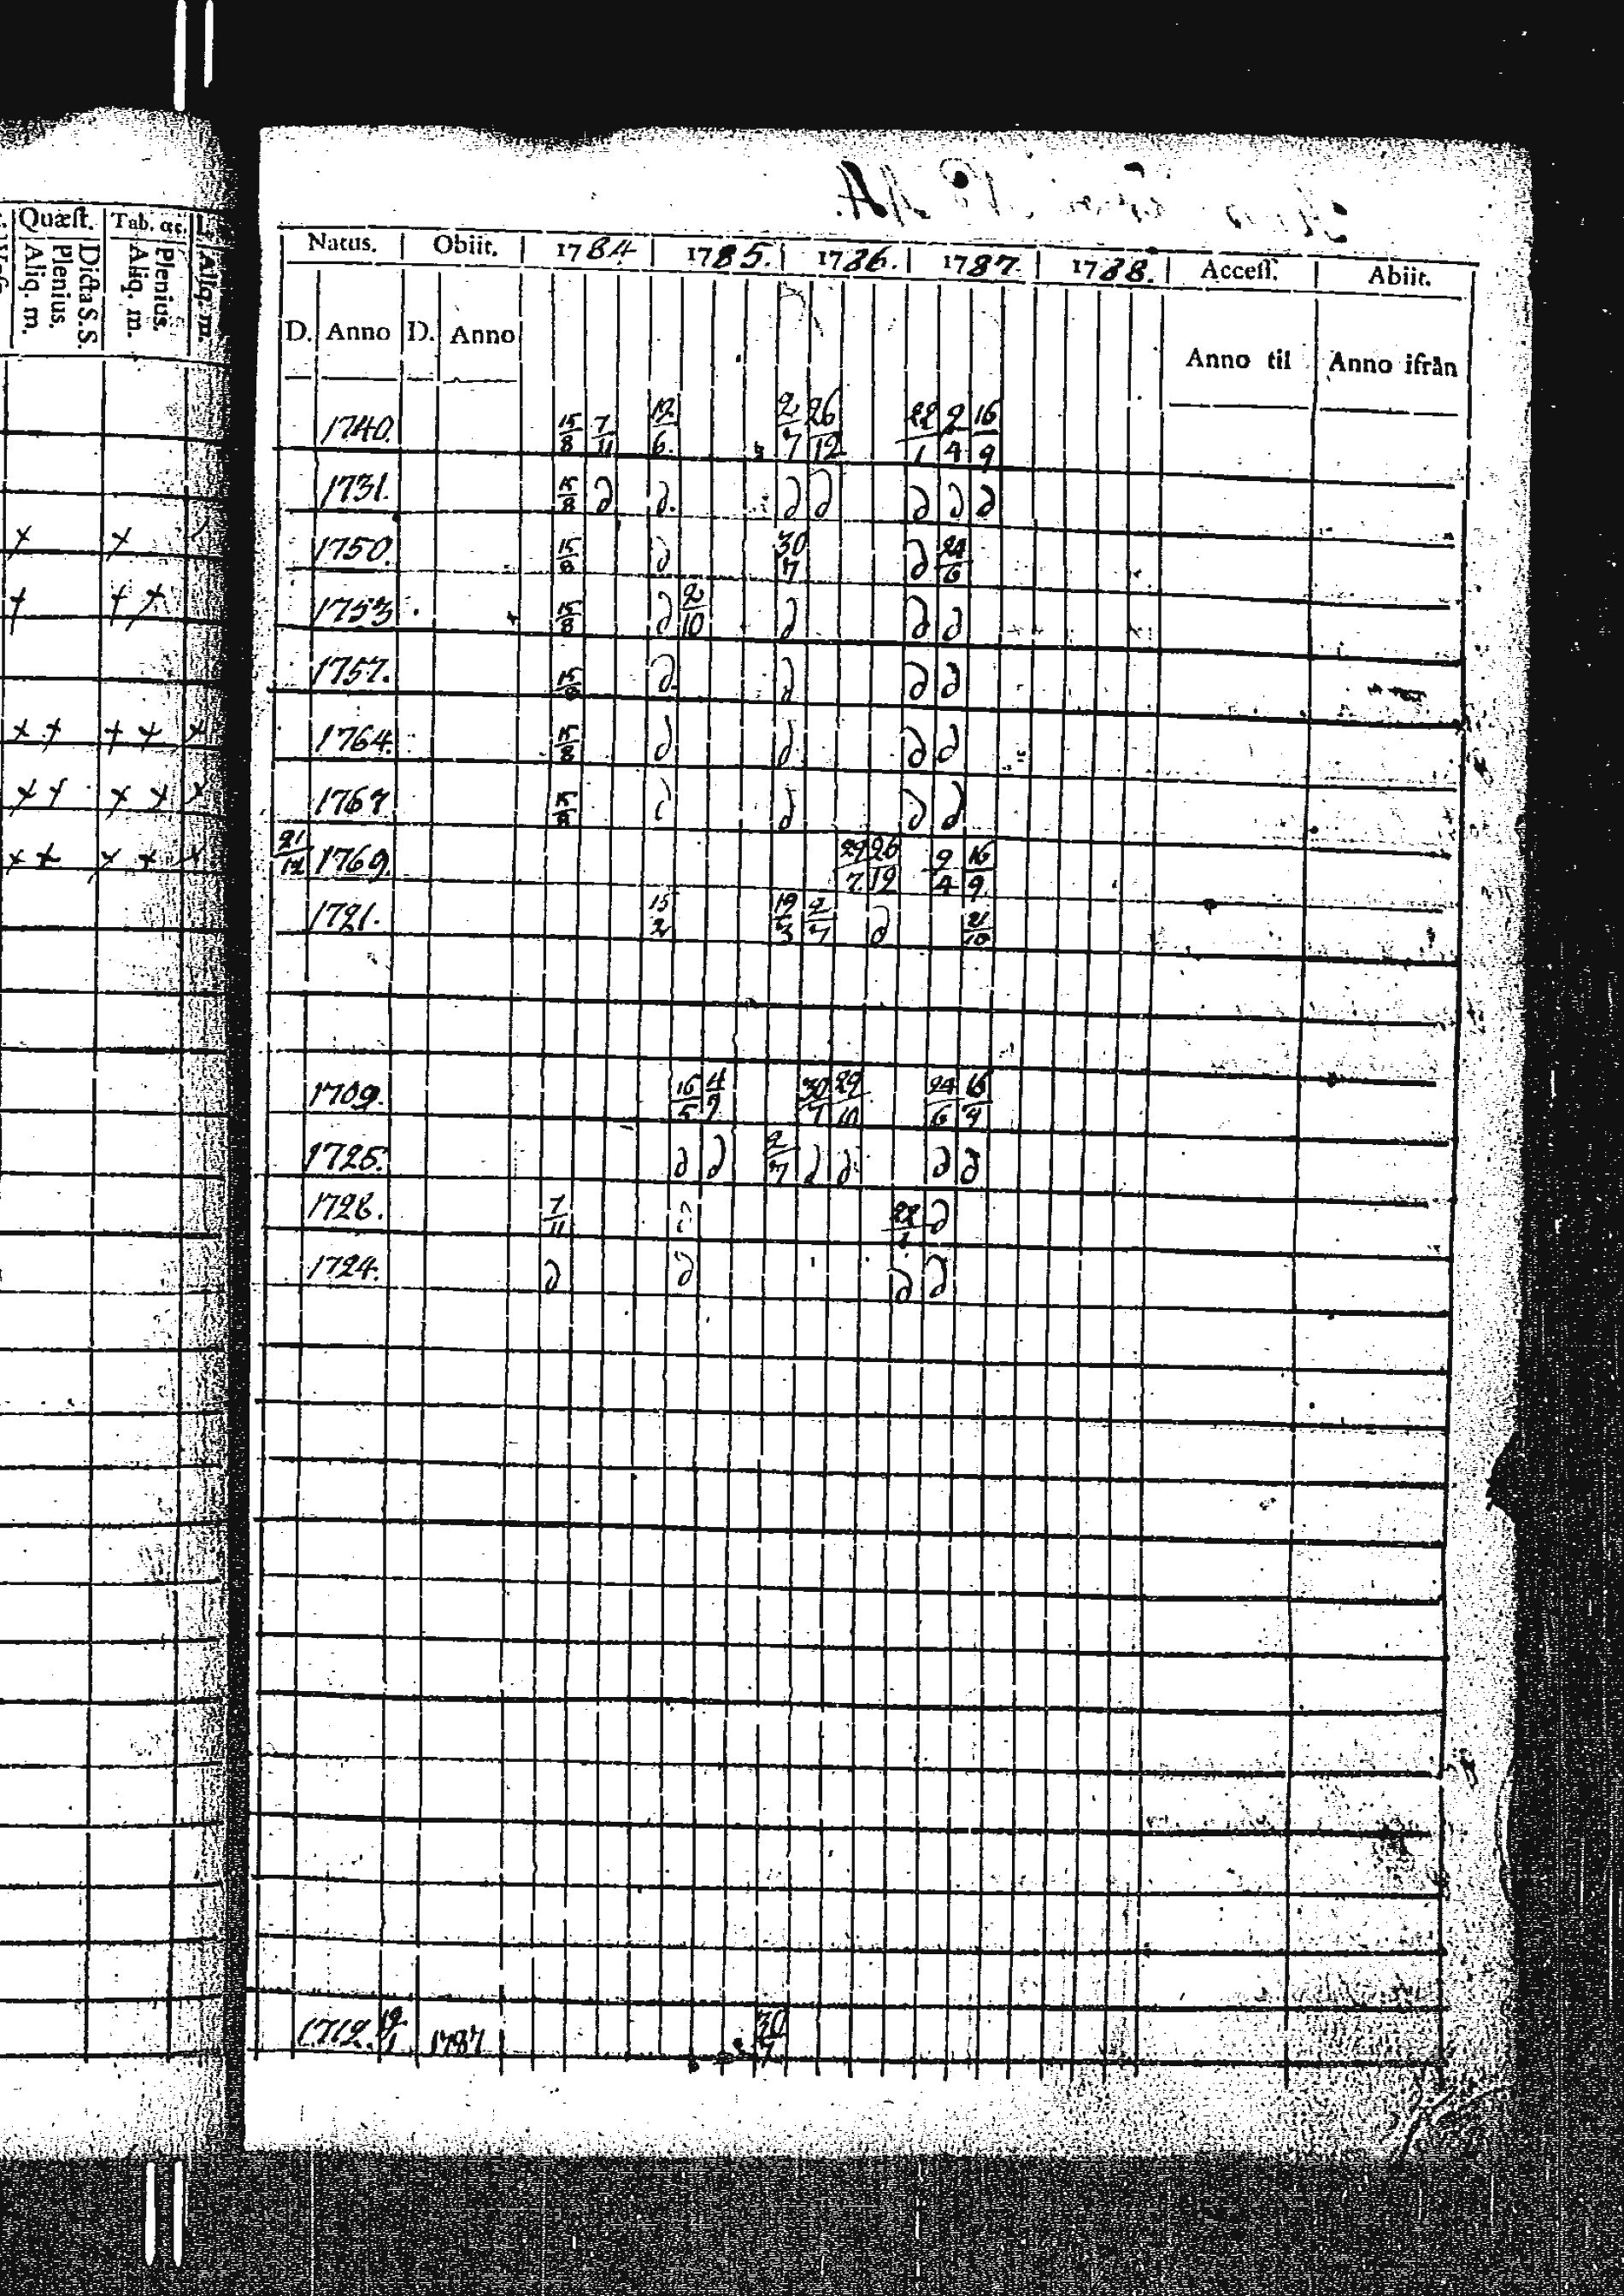 Quæſt. Tab. &c.
Dicta S.S. Plenius. Aliq. m.
Plenius. Aliq. m.
Aliq. m.
Natus. Obiit. 1784. 1785. 1786. 1787. 1788. Acceſſ. Abiit.
D. Anno D. Anno Anno til Anno ifrån
1740. 15/8 7/11 12/6. 2/7 26/12 22/1 2/4 16/9
1731. 15/8 d d. d d d d d
x x 1750. 15/8 d 30/7 d 24/6
x x x 1753. 15/8 d 2/10 d d d
1757. 15/8 d. d d d
x x x x x 1764. 15/8 d d. d d
x x x x x 1767. 15/8 d d d
x x x x x 21/12 1769. 29/7 26/12 9/4 16/9
1721. 15/2 19/3 2/7 d 21/10
1709. 16/5 4/9 30/7 29/10 24/6 16/9
1725. d d 2/7 d d d d
1728. 7/11 d 22/1 d
1724. d d d d
1712. 19/1 1787 30/7